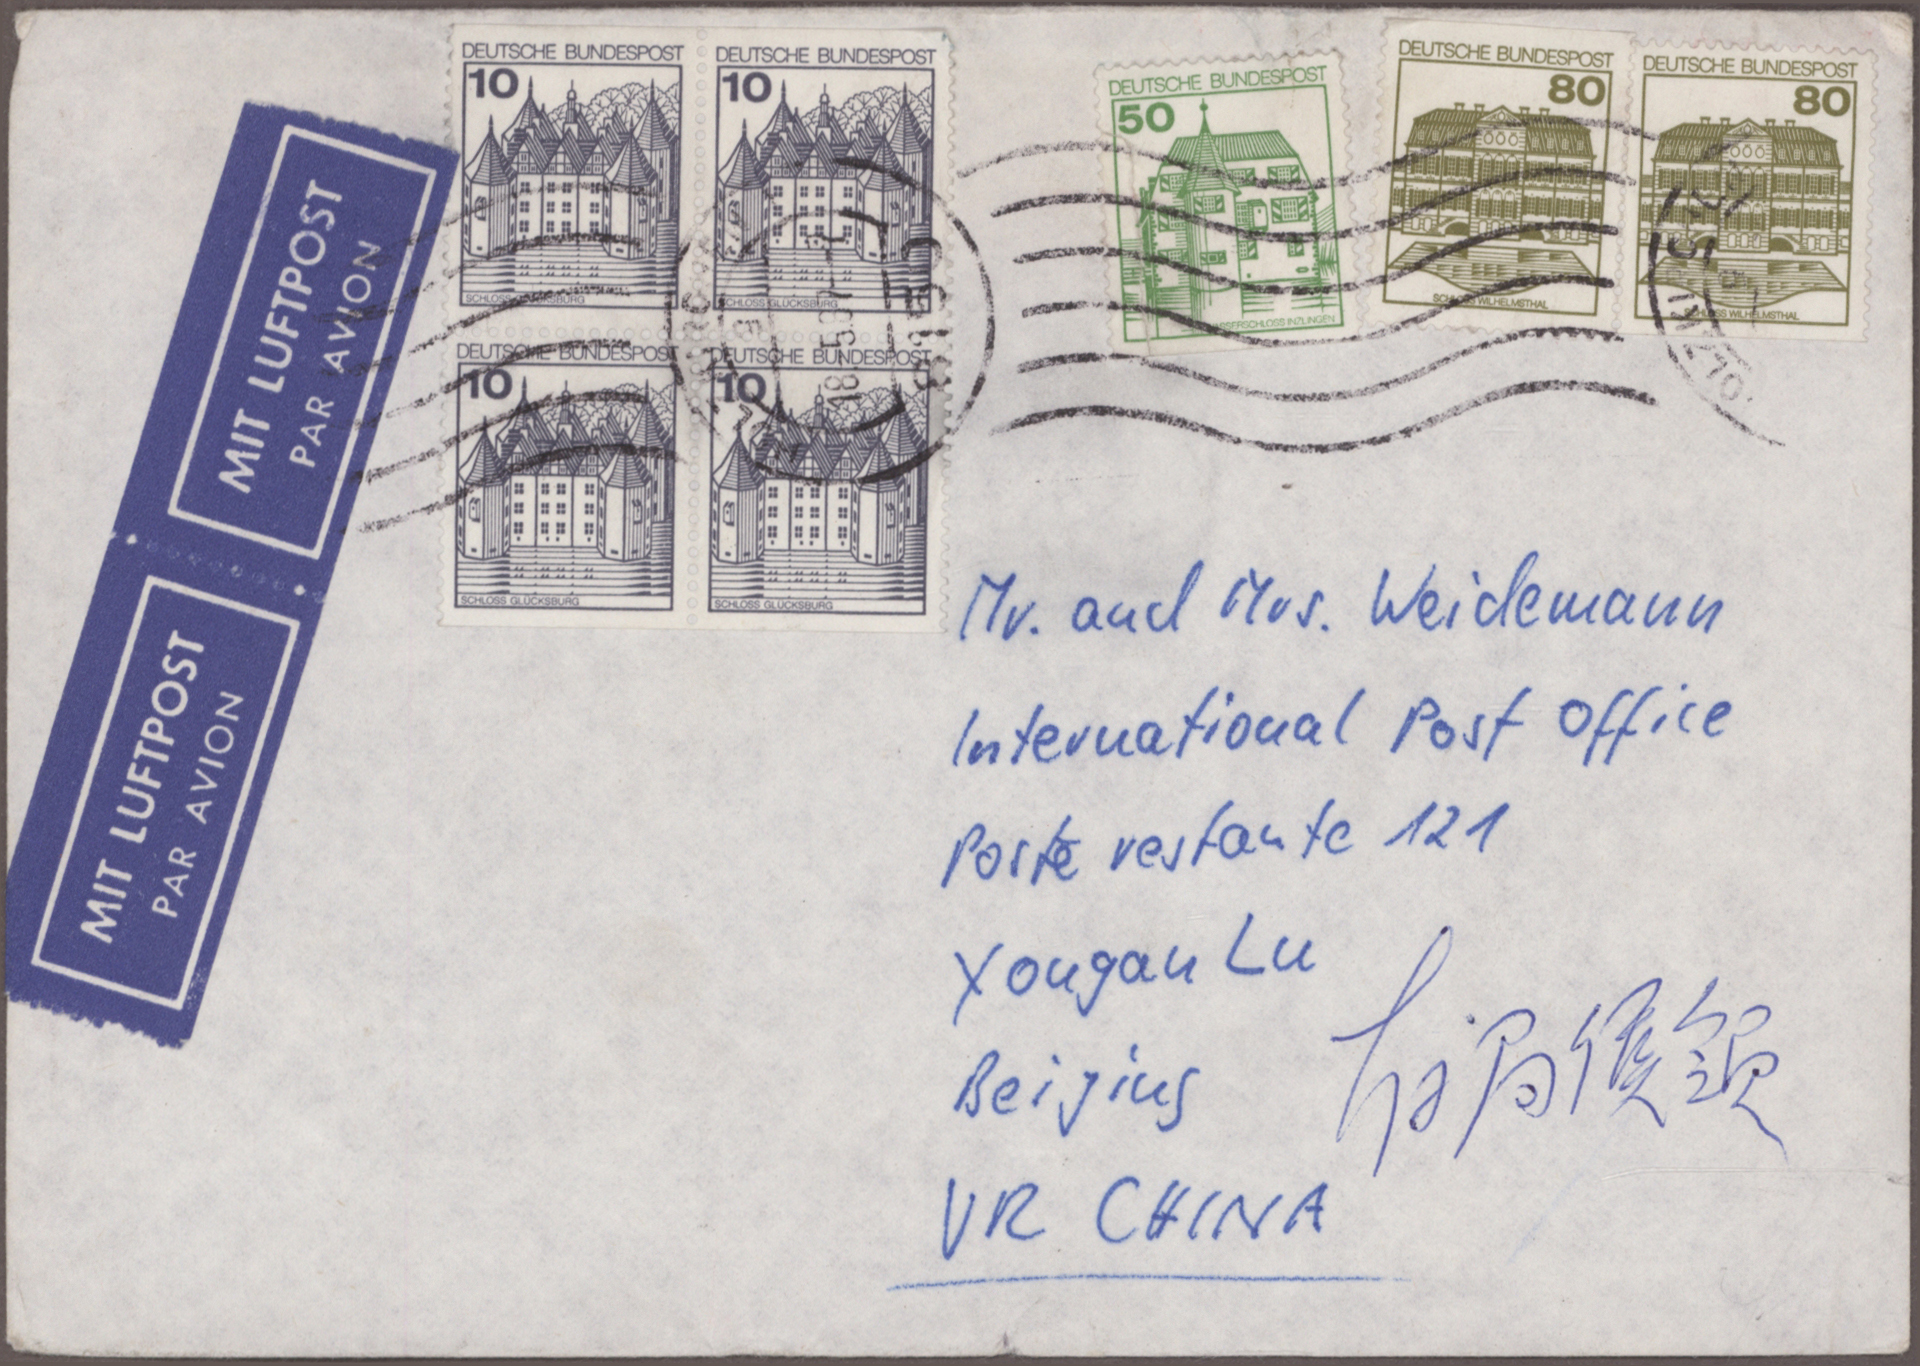 DEUTSCHE BUNDESPOST
10
SCHLOSS GLÜCKSBURG
DEUTSCHE BUNDESPOST
10
SCHLOSS GLÜCKSBURG
DEUTSCHE BUNDESPOST
10
SCHLOSS GLÜCKSBURG
DEUTSCHE BUNDESPOST
10
SCHLOSS GLÜCKSBURG
DEUTSCHE BUNDESPOST
50
WASSERSCHLOSS INZLINGEN
DEUTSCHE BUNDESPOST
80
SCHLOSS WILHELMSTHAL
DEUTSCHE BUNDESPOST
80
SCHLOSS WILHELMSTHAL
MIT LUFTPOST
PAR AVION
MIT LUFTPOST
PAR AVION
Mr. and Mrs. Weidemann
International Post Office
Poste restante 121
Yongan Lu
Beijing
VR CHINA